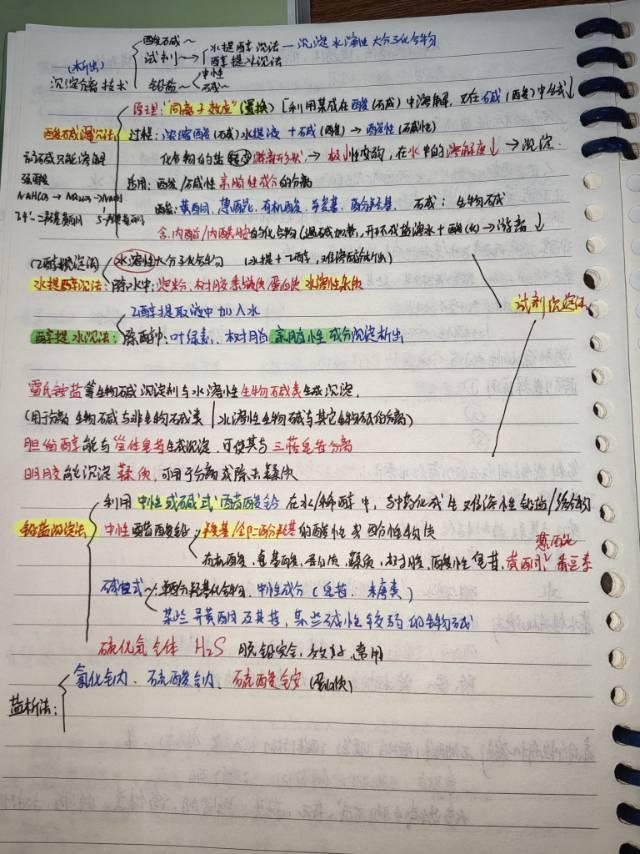 酸碱~
试剂~ 水提醇沉法—沉淀水溶性大分子化合物
醇提水沉法
(析出)
沉淀分离技术
铅盐~ 中性~
碱~
原理:"同离子效应"(置换)[利用某成在酸(碱)中溶解,又在碱(酸)中生↓
酸碱沉淀法
过程:浓缩酸(碱)水提液+碱(酸)→酸性(碱性)
化合物的生 游离形状→极性变改,在水中的溶解度↓→沉淀.
强酸
NaHCO₃→Na₂CO₃→NaOH
适用:酸/碱性亲脂性成分的分离
酸:黄酮、蒽醌、有机酸 碱:生物碱
含内酯/内酰胺的化合物(遇碱加热,开环成盐溶水+酸化→游离↓
(乙醇提沉淀) 水溶性大分子化合物 (水提+乙醇,难溶部析出)
水提醇沉法:除水中:淀粉、树胶、黏液质、蛋白质 水溶性杂质
乙醇提取液中加入水
试剂沉淀法
醇提水沉法:除醇中:叶绿素、树脂 亲脂性成分沉淀析出
雷氏铵盐等生物碱沉淀剂与水溶性生物碱类生成沉淀.
(用于分离生物碱与非生物碱类 水溶性生物碱与其它生物碱的分离)
胆甾醇能与甾体皂苷生成沉淀,可使其与三萜皂苷分离
明胶能沉淀鞣质,可用于分离或除去鞣质
利用中性或碱式醋酸铅在水/稀醇中,与中药化成生难溶性铅盐/络合物
铅盐沉淀法
中性醋酸铅:羧基/邻二酚羟基的酸性或酚性物质
有机酸、氨基酸、蛋白质、鞣质、树脂、酸性皂苷,黄酮、蒽醌、香豆素
碱性~ 中性成分(皂苷、
某些异黄酮及其苷,某些碱性较弱的生物碱
硫化氢气体 H₂S 脱铅安全,较好,常用
盐析法: 氯化钠、硫酸钠、硫酸铵(蛋白质)